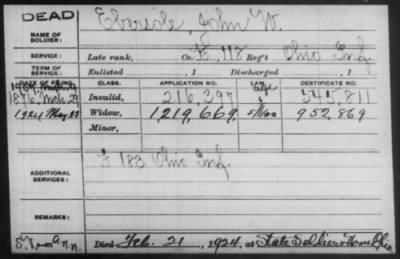 DEAD
NAME OF SOLDIER: Ebersole, John W.
SERVICE: Late rank, Co. K, 118 Reg't Ohio Inf.
TERM OF SERVICE: Enlisted , 1 Discharged , 1
DATE OF FILING. CLASS. APPLICATION NO. LAW. CERTIFICATE NO.
1876, Mch. 29 Invalid, 216,397 345,811
1924 May 23 Widow, 1,219,669, 952,869
Minor,
ADDITIONAL SERVICES: F 183 Ohio Inf.
REMARKS:
Died Feb. 21, 1924, at State Soldiers Home, Ohio.